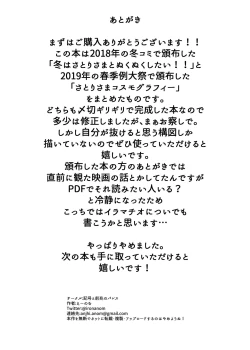 あとがき
まずはご購入ありがとうございます！！
この本は2018年の冬コミで頒布した
「冬はさとりさまとぬくぬくしたい！！」と
2019年の春季例大祭で頒布した
「さとりさまコスモグラフィー」
をまとめたものです。
どちらも〆切ギリギリで完成した本なので
多少は修正しましたが、まぁお察しで。
しかし自分が抜けると思う構図しか
描いていないのでぜひ使っていただけると
嬉しいです。
頒布した本の方のあとがきでは
直前に観た映画の話とかしてたんですが
PDFでそれ読みたい人いる？
と冷静になったため
こっちではイラマチオについても
書こうかと思います…
やっぱりやめました。
次の本も手に取っていただけると
嬉しいです！
作者:
Twitter:@ironanom
本作を無断でネットに転載・複製・アップロードするのはやめようね！